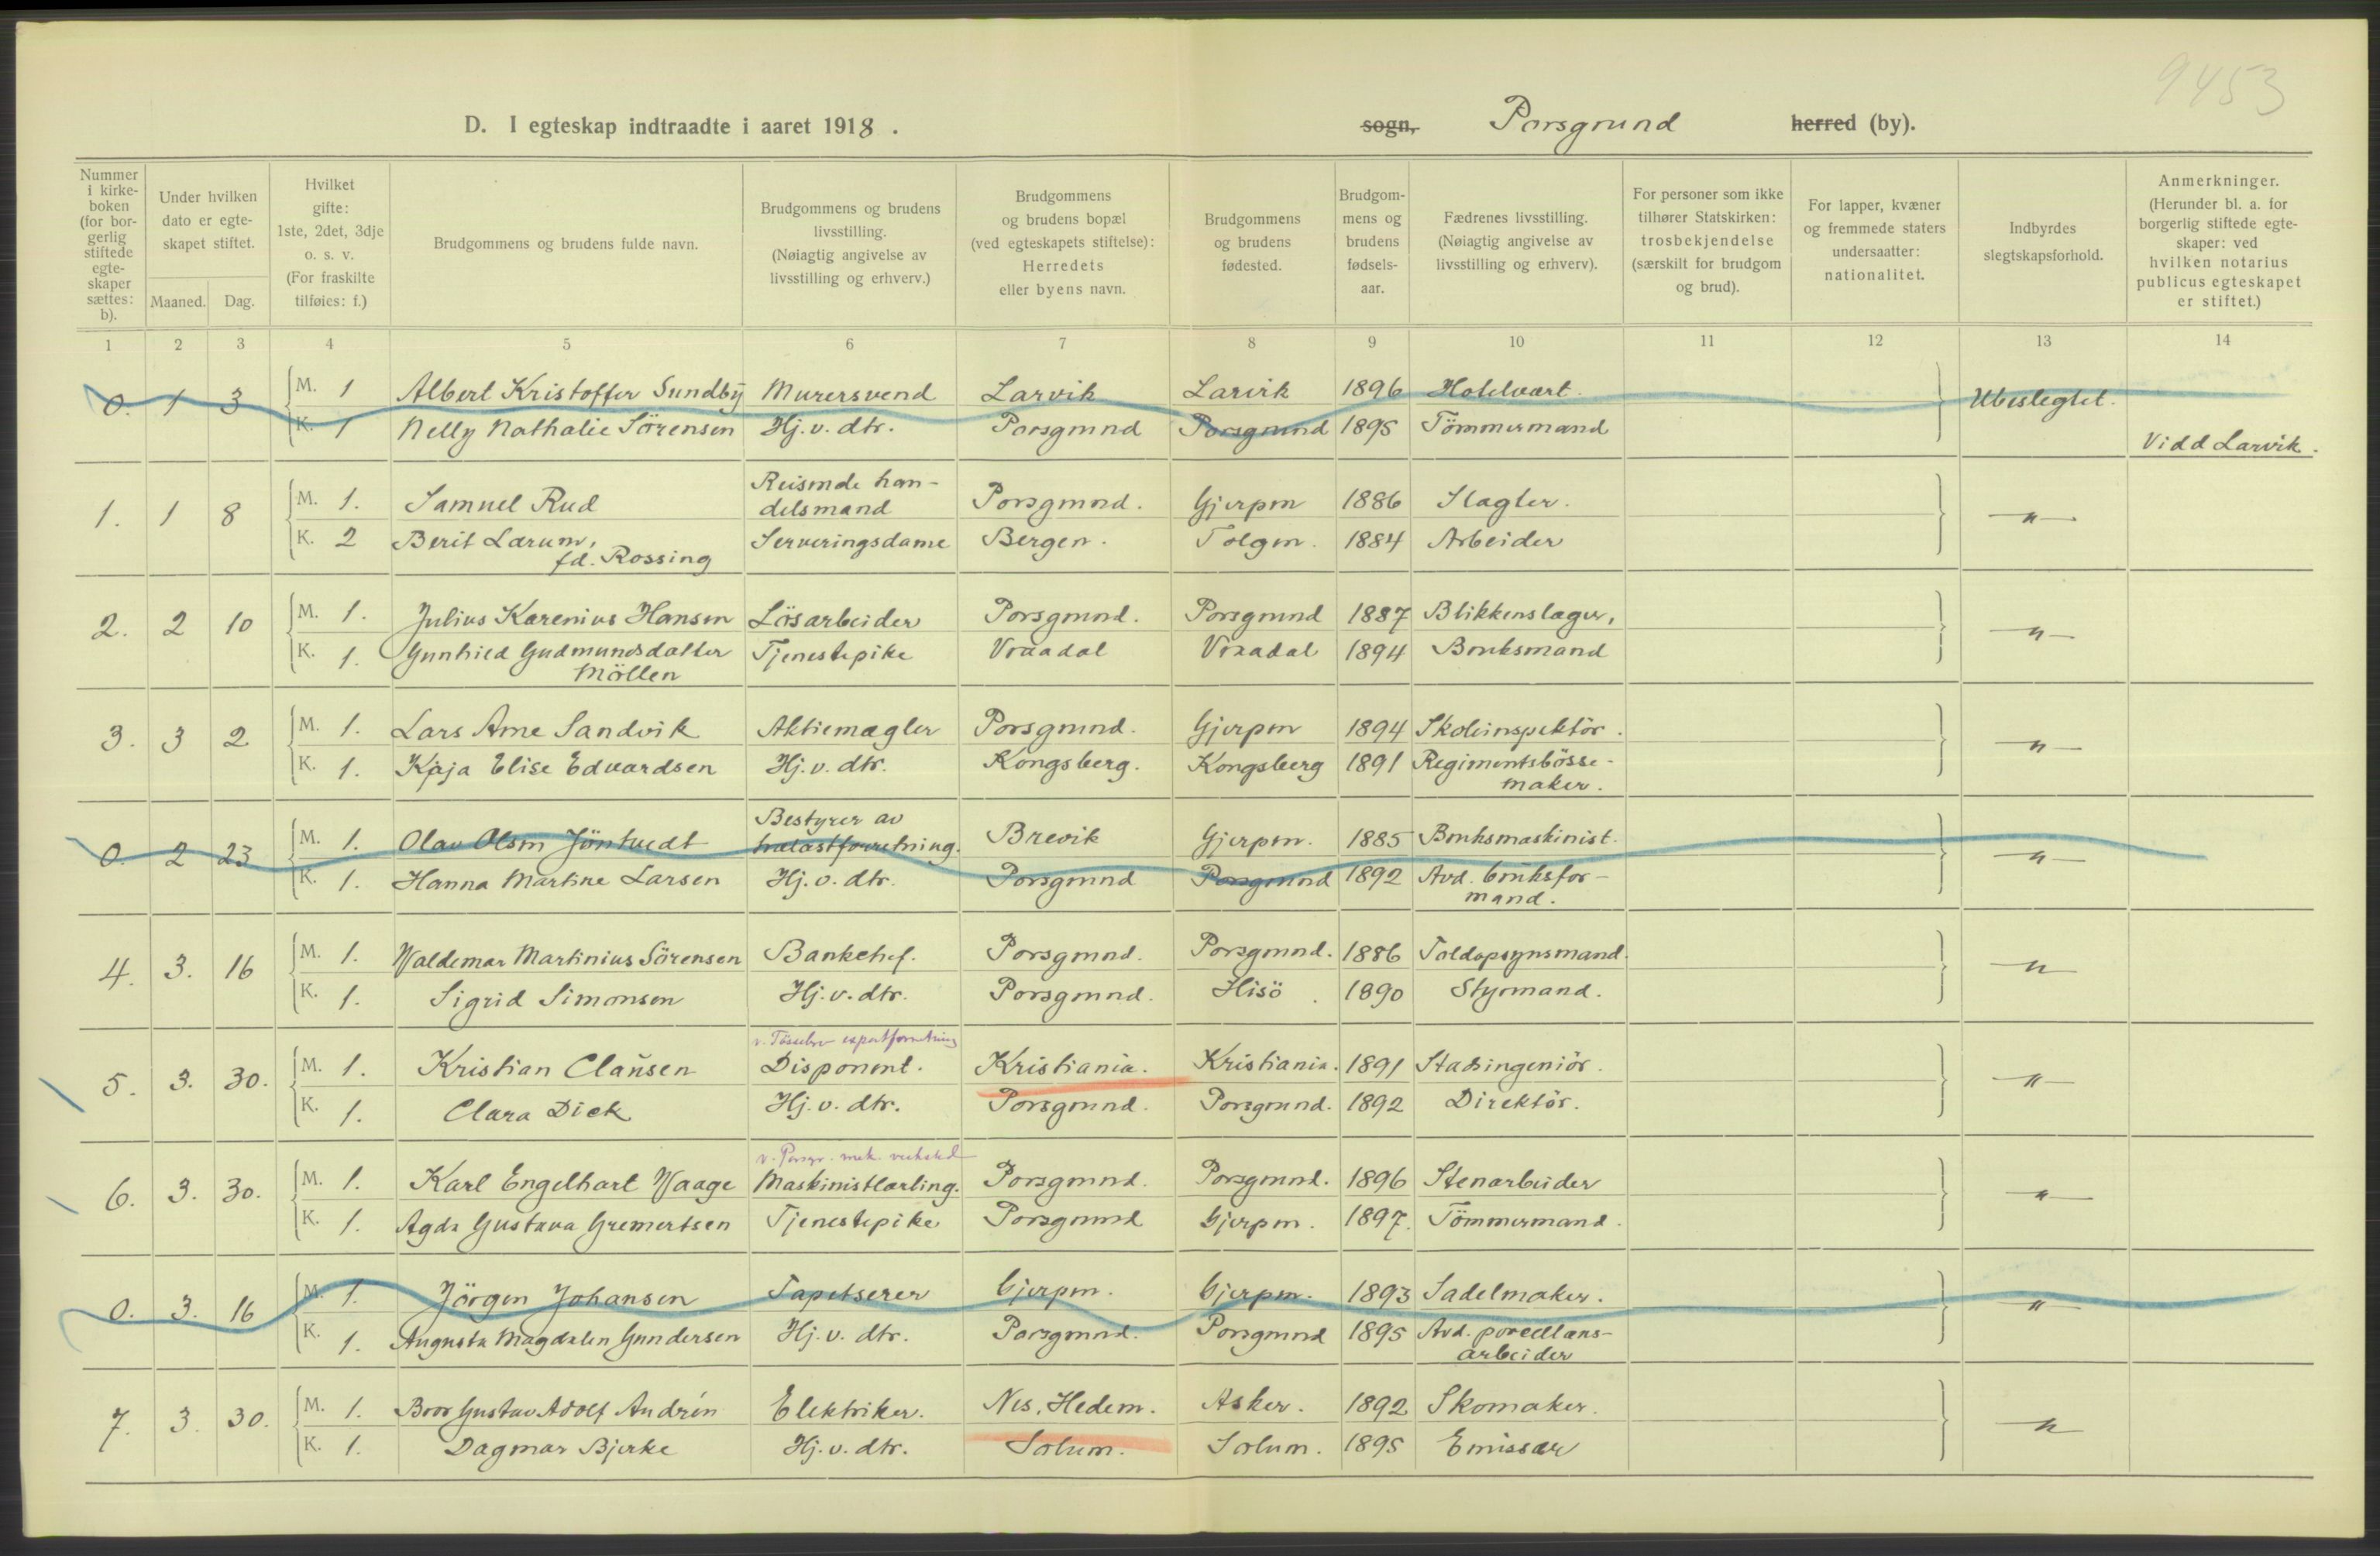 9453
D. I egteskap indtraadte i aaret 1918.
sogn, Porsgrund herred (by).
Nummer i kirkeboken (for borgerlig stiftede egteskaper sættes: b).
Under hvilken dato er egteskapet stiftet.
Maaned. Dag.
Hvilket gifte: 1ste, 2det, 3dje o. s. v. (For fraskilte tilføies: f.)
Brudgommens og brudens fulde navn.
Brudgommens og brudens livsstilling. (Nøiagtig angivelse av livsstilling og erhverv.)
Brudgommens og brudens bopæl (ved egteskapets stiftelse): Herredets eller byens navn.
Brudgommens og brudens fødested.
Brudgommens og brudens fødselsaar.
Fædrenes livsstilling. (Nøiagtig angivelse av livsstilling og erhverv).
For personer som ikke tilhører Statskirken: trosbekjendelse (særskilt for brudgom og brud).
For lapper, kvæner og fremmede staters undersaatter: nationalitet.
Indbyrdes slegtskapsforhold.
Anmerkninger. (Herunder bl. a. for borgerlig stiftede egteskaper: ved hvilken notarius publicus egteskapet er stiftet.)
1 2 3 4 5 6 7 8 9 10 11 12 13 14
0. 1 3 M. 1 Albert Kristoffer Sundby Murersvend Larvik Larvik 1896 Hotelvært. Ubeslegtet.
K. 1 Nelly Nathalie Sörensen Hj. v. dtr. Porsgrund Porsgrund 1895 Tömmermand
Vidd Larvik.
1. 1 8 M. 1. Samuel Rud Reisende handelsmand Porsgrund. Gjerpen 1886 Slagter. -"-
K. 2 Berit Lærum, fd. Rossing Serveringsdame Bergen. Tolgen. 1884 Arbeider
2. 2 10 M. 1. Julius Karenius Hansen Lösarbeider Porsgrund. Porsgrund 1887 Blikkenslager, -"-
K. 1. Gunhild Gudmundsdatter Möllen Tjenestepike Vraadal Vraadal 1894 Bruksmand
3. 3 2 M. 1. Lars Arne Sandvik Aktiemægler Porsgrund. Gjerpen 1894 Skoleinspektör. -"-
K. 1. Kaja Elise Edvardsen Hj. v. dtr. Kongsberg. Kongsberg 1891 Regimentsbössemaker.
0. 2 23 M. 1. Olav Olsen Jöntvedt Bestyrer av trælastforretning. Brevik Gjerpen. 1885 Bruksmaskinist. -"-
K. 1. Hanna Martine Larsen Hj. v. dtr. Porsgrund Porsgrund 1892 Avd. bruksformand.
4. 3. 16 M. 1. Valdemar Martinius Sörensen Bankchef. Porsgrund. Porsgrund. 1886 Toldopsynsmand. -"-
K. 1. Sigrid Simonsen Hj. v. dtr. Porsgrund. Hisö. 1890 Styrmand.
exportforretning
5. 3. 30. M. 1. Kristian Clausen Disponent. Kristiania. Kristiania. 1891 Stadsingeniör. -"-
K. 1. Clara Dick Hj. v. dtr. Porsgrund. Porsgrund. 1892 Direktör.
v. Porsgr. mek. verksted
6. 3. 30. M. 1. Karl Engelhart Waage Maskinistlærling. Porsgrund. Porsgrund. 1896 Stenarbeider -"-
K. 1. Agda Gustava Gremertsen Tjenestepike Porsgrund Gjerpen. 1897. Tömmermand.
0. 3. 16 M. 1. Jörgen Johansen Tapetserer Gjerpen. Gjerpen. 1893 Sadelmaker. -"-
K. 1. Augusta Magdalen Gundersen Hj. v. dtr. Porsgrund. Porsgrund 1895 Avd. porcellænsarbeider
7. 3. 30. M. 1. Bror Gustav Adolf Andrén Elektriker. Nes, Hedem. Asker. 1892 Skomaker. -"-
K. 1. Dagmar Bjerke Hj. v. dtr. Solum. Solum. 1895 Emissær